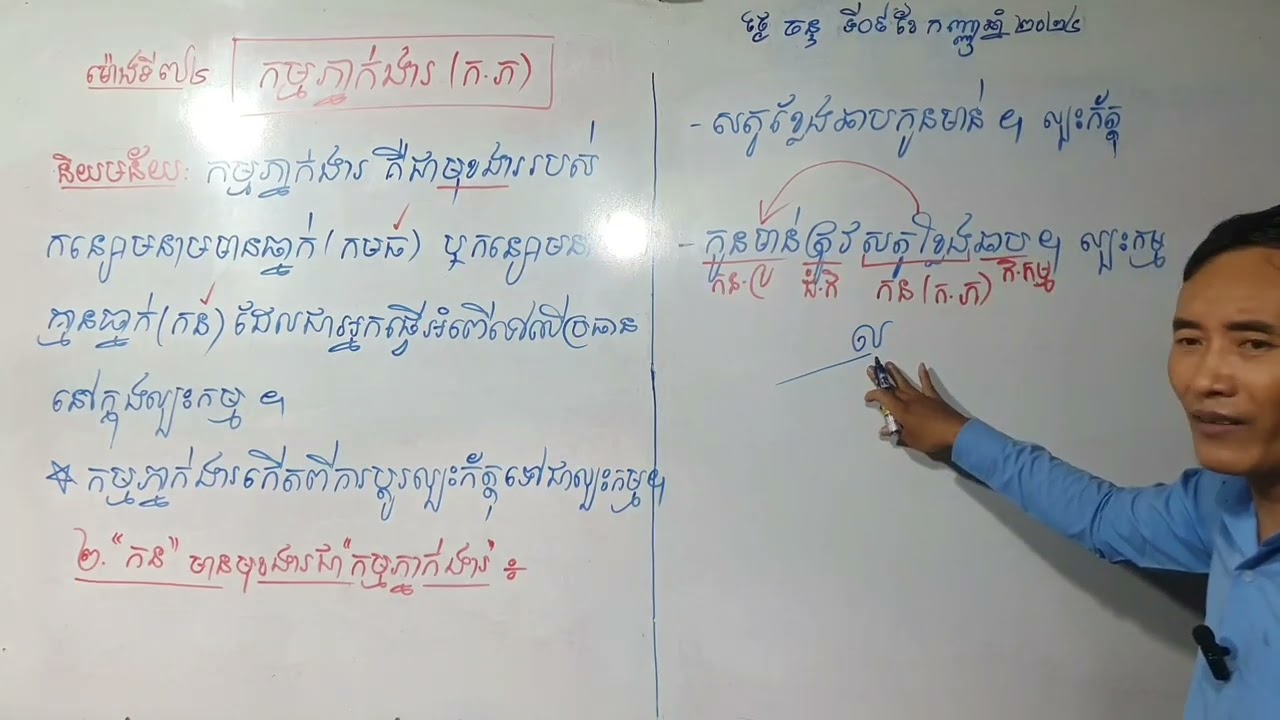 ថ្ងៃ ចន្ទ ទី០៩ ខែ កញ្ញា ឆ្នាំ ២០២៤
ម៉ោងទី៧៤
កម្មភ្នាក់ងារ (ក.ភ)
និយមន័យ: កម្មភ្នាក់ងារ គឺជាមុខងាររបស់
កន្សោមនាមមានធ្នាក់ (កមធ៍) ឬកន្សោមនាម
គ្មានធ្នាក់ (កន៍) ដែលជាអ្នកធ្វើអំពើទៅលើប្រធាន
នៅក្នុងល្បះកម្ម ។
* កម្មភ្នាក់ងារកើតពីការប្ដូរល្បះកត្តុទៅជាល្បះកម្ម។
២. "កន" មានមុខងារជា "កម្មភ្នាក់ងារ" ៖
- សត្វខ្លែងឆាបកូនមាន់ ។ ល្បះកត្តុ
- កូនមាន់ត្រូវសត្វខ្លែងឆាប ។ ល្បះកម្ម
កន.ប្រ ជំ.កិ កន (ក.ភ) កិ.កម្ម
ល